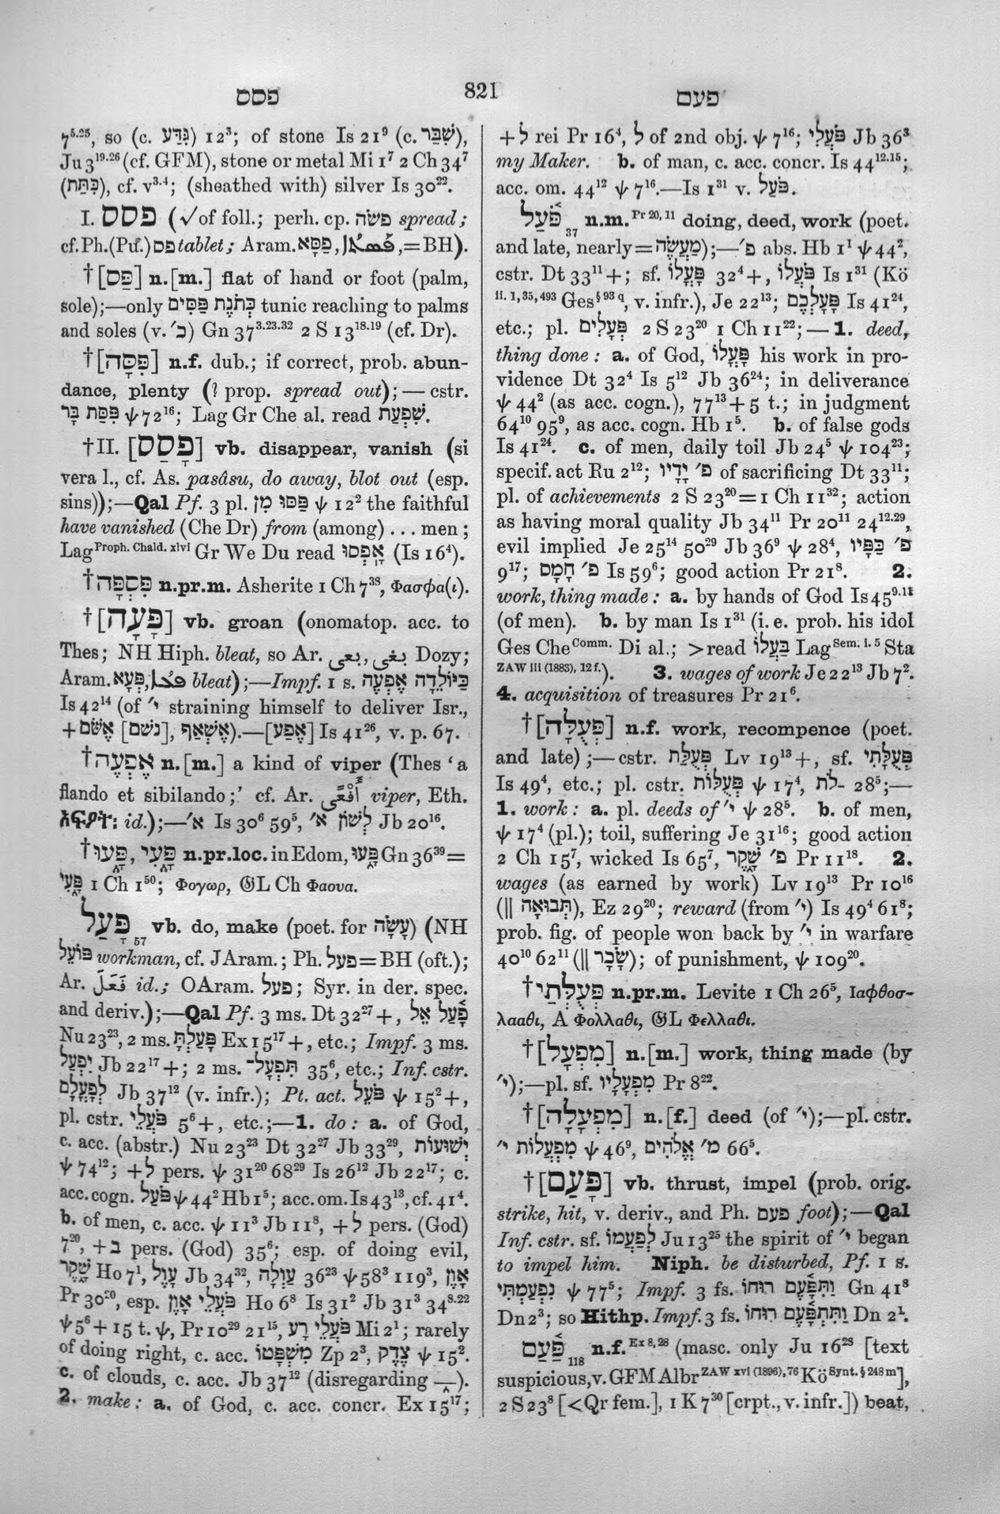 פסס
821
פעם
7⁵·²⁵, so (c. גִּדַּע) 12³; of stone Is 21⁹ (c. שִׁבַּר),
Ju 3¹⁹·²⁶ (cf. GFM), stone or metal Mi 1⁷ 2 Ch 34⁷
(כִּתַּת), cf. v³·⁴; (sheathed with) silver Is 30²².
I. פסס (√ of foll.; perh. cp. פשׂה spread;
cf. Ph. (Pu.) פס tablet; Aram. פַּסָּא, = BH).
†[פַּס] n.[m.] flat of hand or foot (palm,
sole);—only כְּתֹנֶת פַּסִּים tunic reaching to palms
and soles (v. כ׳) Gn 37³·²³·³² 2 S 13¹⁸·¹⁹ (cf. Dr).
†[פִּסָּה] n.f. dub.; if correct, prob. abun-
dance, plenty (? prop. spread out);—cstr.
פִּסַּת בַּר ψ 72¹⁶; Lag Gr Che al. read שִׁפְעַת.
†II. [פָּסַס] vb. disappear, vanish (si
vera l., cf. As. pasâsu, do away, blot out (esp.
sins));—Qal Pf. 3 pl. פַּסּוּ מִן ψ 12² the faithful
have vanished (Che Dr) from (among) ... men;
Lag Proph. Chald. xlvi Gr We Du read אָפְסוּ (Is 16⁴).
†פִּסְפָּה n.pr.m. Asherite 1 Ch 7³⁸, Φασφα(ι).
†[פָּעָה] vb. groan (onomatop. acc. to
Thes; NH Hiph. bleat, so Ar. بغى, بعى Dozy;
Aram. פְּעָא, bleat);—Impf. 1 s. כַּיּוֹלֵדָה אֶפְעֶה
Is 42¹⁴ (of י׳ straining himself to deliver Isr.,
+ אֶשֹּׁם [נשׁם], אֶשְׁאַף).—[אֶפַע] Is 41²⁶, v. p. 67.
†אֶפְעֶה n.[m.] a kind of viper (Thes ‘a
flando et sibilando;’ cf. Ar. أَفْعًى viper, Eth.
id.);—א׳ Is 30⁶ 59⁵, לְשׁוֹן א׳ Jb 20¹⁶.
†פָּעוּ, פָּעִי n.pr.loc. in Edom, פָּעוּ Gn 36³⁹ =
פָּעִי 1 Ch 1⁵⁰; Φογωρ, 𝔊L Ch Φαουα.
פָּעַל 57 vb. do, make (poet. for עָשָׂה) (NH
פּוֹעֵל workman, cf. JAram.; Ph. פעל = BH (oft.);
Ar. فَعَلَ id.; OAram. פעל; Syr. in der. spec.
and deriv.);—Qal Pf. 3 ms. Dt 32²⁷ +, פָּעַל אֵל
Nu 23²³, 2 ms. פָּעַלְתָּ Ex 15¹⁷ +, etc.; Impf. 3 ms.
יִפְעַל Jb 22¹⁷ +; 2 ms. תִּפְעָל־ 35⁶, etc.; Inf. cstr.
לְפָעֳלָם Jb 37¹² (v. infr.); Pt. act. פֹּעֵל ψ 15² +,
pl. cstr. פֹּעֲלֵי 5⁶ +, etc.;—1. do: a. of God,
c. acc. (abstr.) Nu 23²³ Dt 32²⁷ Jb 33²⁹, יְשׁוּעוֹת
ψ 74¹²; + לְ pers. ψ 31²⁰ 68²⁹ Is 26¹² Jb 22¹⁷; c.
acc. cogn. פֹּעַל ψ 44² Hb 1⁵; acc. om. Is 43¹³, cf. 41⁴.
b. of men, c. acc. ψ 11³ Jb 11⁸, + לְ pers. (God)
7²⁰, + בְּ pers. (God) 35⁶; esp. of doing evil,
שֶׁקֶר Ho 7¹, עָוֶל Jb 34³², עַוְלָה 36²³ ψ 58³ 119³, אָוֶן
Pr 30²⁰, esp. פֹּעֲלֵי אָוֶן Ho 6⁸ Is 31² Jb 31³ 34⁸·²²
ψ 5⁶ + 15 t. ψ, Pr 10²⁹ 21¹⁵, פֹּעֲלֵי רָע Mi 2¹; rarely
of doing right, c. acc. מִשְׁפָּטוֹ Zp 2³, צֶדֶק ψ 15².
c. of clouds, c. acc. Jb 37¹² (disregarding ).
2. make: a. of God, c. acc. concr. Ex 15¹⁷;
+ לְ rei Pr 16⁴, לְ of 2nd obj. ψ 7¹⁶; פֹּעֲלִי Jb 36³
my Maker. b. of man, c. acc. concr. Is 44¹²·¹⁵;
acc. om. 44¹² ψ 7¹⁶.—Is 1³¹ v. פֹּעַל.
פֹּעַל 37 n.m. Pr 20, 11 doing, deed, work (poet.
and late, nearly = מַעֲשֶׂה);—פ׳ abs. Hb 1¹ ψ 44²,
cstr. Dt 33¹¹ +; sf. פָּעֳלוֹ 32⁴ +, פֹּעֲלוֹ Is 1³¹ (Kö
II. 1, 35, 493 Ges § 93 q, v. infr.), Je 22¹³; פָּעָלְכֶם Is 41²⁴,
etc.; pl. פְּעָלִים 2 S 23²⁰ 1 Ch 11²²;—1. deed,
thing done: a. of God, פָּעֳלוֹ his work in pro-
vidence Dt 32⁴ Is 5¹² Jb 36²⁴; in deliverance
ψ 44² (as acc. cogn.), 77¹³ + 5 t.; in judgment
64¹⁰ 95⁹, as acc. cogn. Hb 1⁵. b. of false gods
Is 41²⁴. c. of men, daily toil Jb 24⁵ ψ 104²³;
specif. act Ru 2¹²; פ׳ יָדָיו of sacrificing Dt 33¹¹;
pl. of achievements 2 S 23²⁰ = 1 Ch 11³²; action
as having moral quality Jb 34¹¹ Pr 20¹¹ 24¹²·²⁹,
evil implied Je 25¹⁴ 50²⁹ Jb 36⁹ ψ 28⁴, פ׳ כַּפָּיו
9¹⁷; פ׳ חָמָס Is 59⁶; good action Pr 21⁸. 2.
work, thing made: a. by hands of God Is 45⁹·¹¹
(of men). b. by man Is 1³¹ (i.e. prob. his idol
Ges Che Comm. Di al.; > read בַּעְלוֹ Lag Sem. i. 5 Sta
ZAW III (1883), 12 f.). 3. wages of work Je 22¹³ Jb 7².
4. acquisition of treasures Pr 21⁶.
†[פְּעֻלָּה] n.f. work, recompence (poet.
and late);—cstr. פְּעֻלַּת Lv 19¹³ +, sf. פְּעֻלָּתִי
Is 49⁴, etc.; pl. cstr. פְּעֻלּוֹת ψ 17⁴, לֹּת- 28⁵;—
1. work: a. pl. deeds of י׳ ψ 28⁵. b. of men,
ψ 17⁴ (pl.); toil, suffering Je 31¹⁶; good action
2 Ch 15⁷, wicked Is 65⁷, פ׳ שֶׁקֶר Pr 11¹⁸. 2.
wages (as earned by work) Lv 19¹³ Pr 10¹⁶
(|| תְּבוּאָה), Ez 29²⁰; reward (from י׳) Is 49⁴ 61⁸;
prob. fig. of people won back by י׳ in warfare
40¹⁰ 62¹¹ (|| שָׂכָר); of punishment, ψ 109²⁰.
†פְּעֻלְּתַי n.pr.m. Levite 1 Ch 26⁵, Ιαφθοσ-
λααθι, A Φολλαθι, 𝔊L Φελλαθι.
†[מִפְעָל] n.[m.] work, thing made (by
י׳);—pl. sf. מִפְעָלָיו Pr 8²².
†[מִפְעָלָה] n.[f.] deed (of י׳);—pl. cstr.
מִפְעֲלוֹת י׳ ψ 46⁹, מ׳ אֱלֹהִים 66⁵.
†[פָּעַם] vb. thrust, impel (prob. orig.
strike, hit, v. deriv., and Ph. פעם foot);—Qal
Inf. cstr. sf. לְפַעֲמוֹ Ju 13²⁵ the spirit of י׳ began
to impel him. Niph. be disturbed, Pf. 1 s.
נִפְעַמְתִּי ψ 77⁵; Impf. 3 fs. וַתִּפָּעֶם רוּחוֹ Gn 41⁸
Dn 2³; so Hithp. Impf. 3 fs. וַתִּתְפָּעֶם רוּחוֹ Dn 2¹.
פַּעַם 118 n.f. Ex 8, 28 (masc. only Ju 16²⁸ [text
suspicious, v. GFM Albr ZAW xvi (1896), 76 Kö Synt. § 248 m],
2 S 23⁸ [< Qr fem.], 1 K 7³⁰ [crpt., v. infr.]) beat,